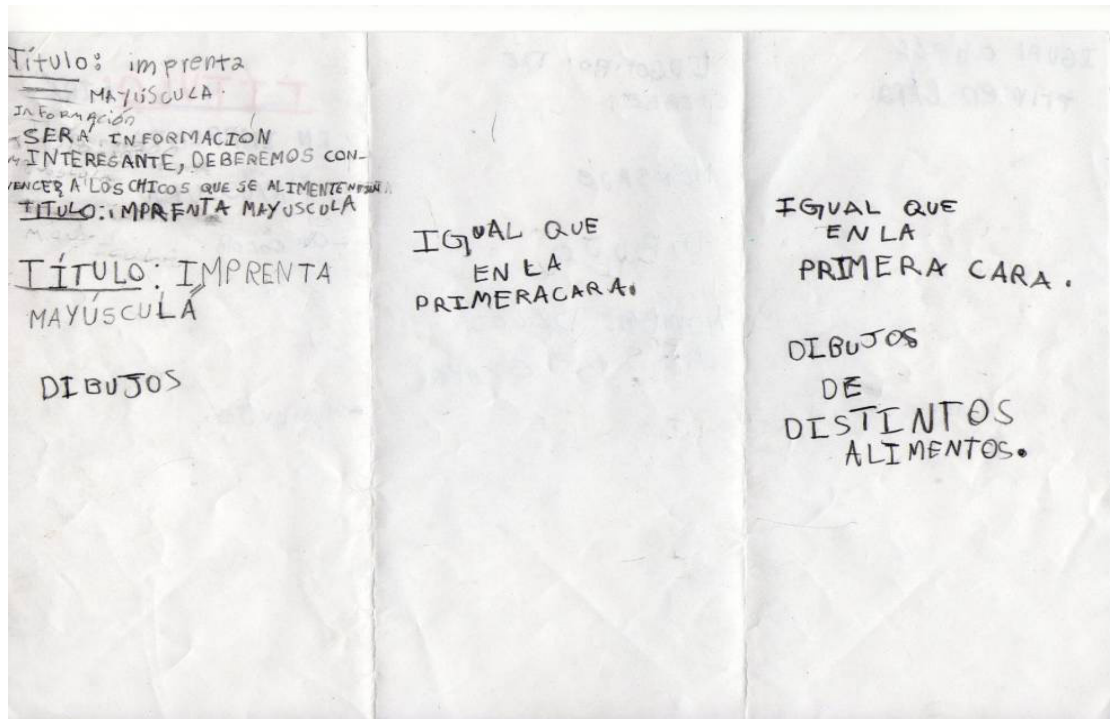 Título: imprenta
MAYÚSCULA.
Información
SERÁ INFORMACIÓN
INTERESANTE, DEBEREMOS CON-
VENCER A LOS CHICOS QUE SE ALIMENTEN
TITULO: IMPRENTA MAYUSCULA
TÍTULO: IMPRENTA
MAYÚSCULA
DIBUJOS
IGUAL QUE
EN LA
PRIMERA CARA.
IGUAL QUE
EN LA
PRIMERA CARA.
DIBUJOS
DE
DISTINTOS
ALIMENTOS.